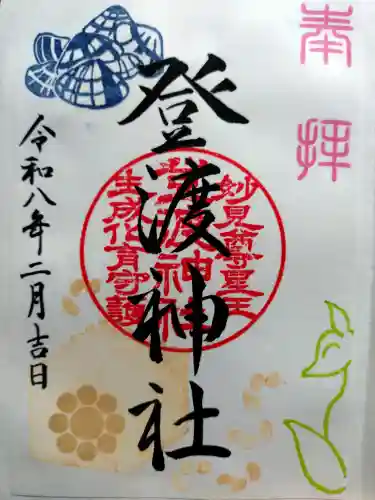 奉拝
妙見尊星王
登渡神社
生成化育守護
登渡神社
令和八年二月吉日